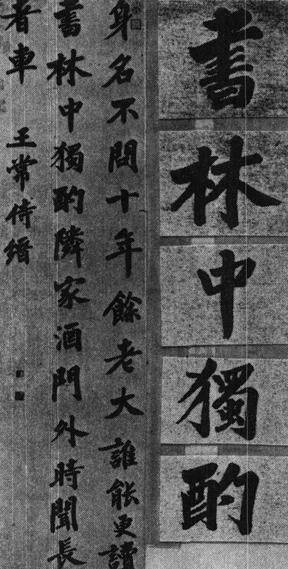 書林中獨酌
身名不問十年餘老大誰能更讀
書林中獨酌隣家酒門外時聞長
者車 王常侍縉